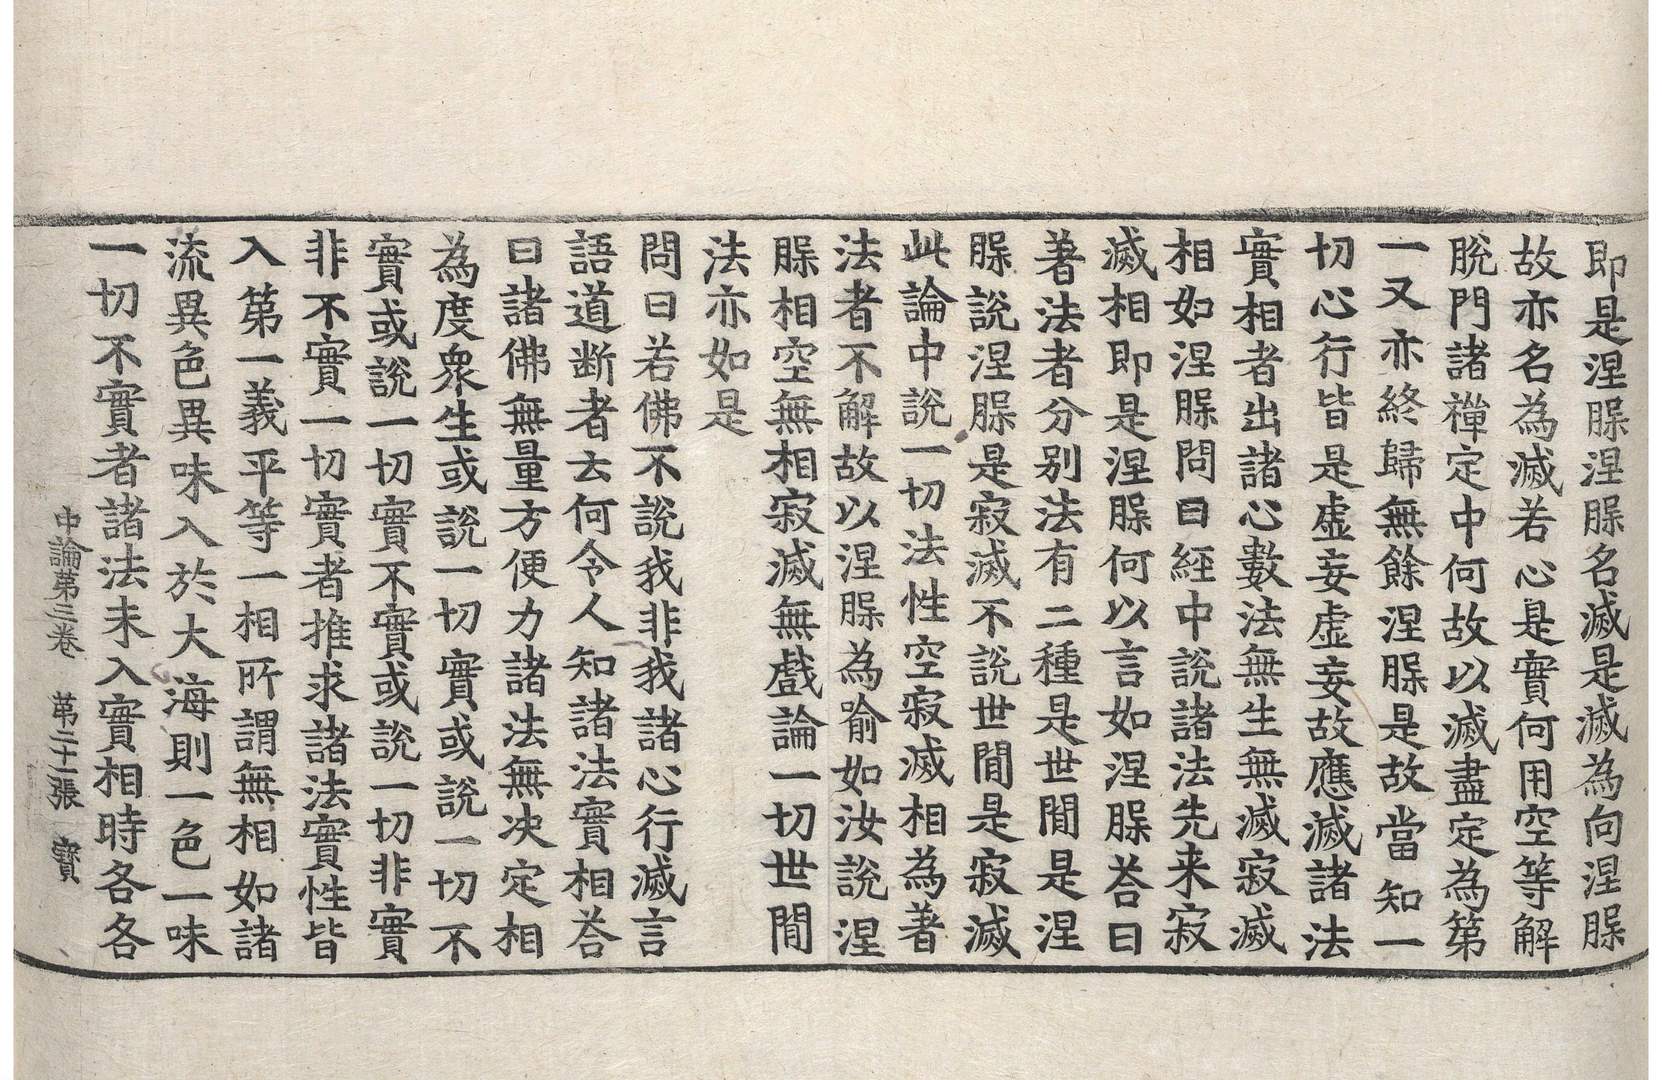 即是涅槃涅槃名滅是滅為向涅槃
故亦名為滅若心是實何用空等解
脫門諸禪定中何故以滅盡定為第
一又亦終歸無餘涅槃是故當知一
切心行皆是虛妄虛妄故應滅諸法
實相者出諸心數法無生無滅寂滅
相如涅槃問曰經中說諸法先来寂
滅相即是涅槃何以言如涅槃荅曰
著法者分別法有二種是世間是涅
槃說涅槃是寂滅不說世間是寂滅
此論中說一切法性空寂滅相為著
法者不解故以涅槃為喻如汝說涅
槃相空無相寂滅無戲論一切世間
法亦如是
問曰若佛不說我非我諸心行滅言
語道断者云何令人知諸法實相荅
曰諸佛無量方便力諸法無决定相
為度衆生或說一切實或說一切不
實或說一切實不實或說一切非實
非不實一切實者推求諸法實性皆
入第一義平等一相所謂無相如諸
流異色異味入於大海則一色一味
一切不實者諸法未入實相時各各
中論第三卷 第二十一張 寶